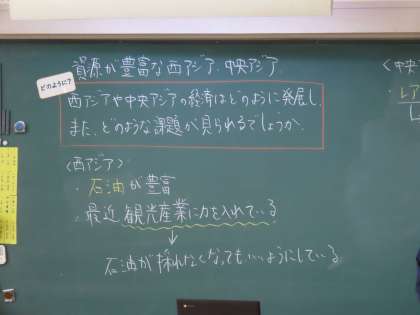 資源が豊富な西アジア、中央アジア
どのように?
西アジアや中央アジアの経済はどのように発展し、
また、どのような課題が見られるでしょうか。
<西アジア>
・石油が豊富
・最近 観光産業に力を入れている
↓
石油が採れなくなってもいいようにしている
<中央
・レア